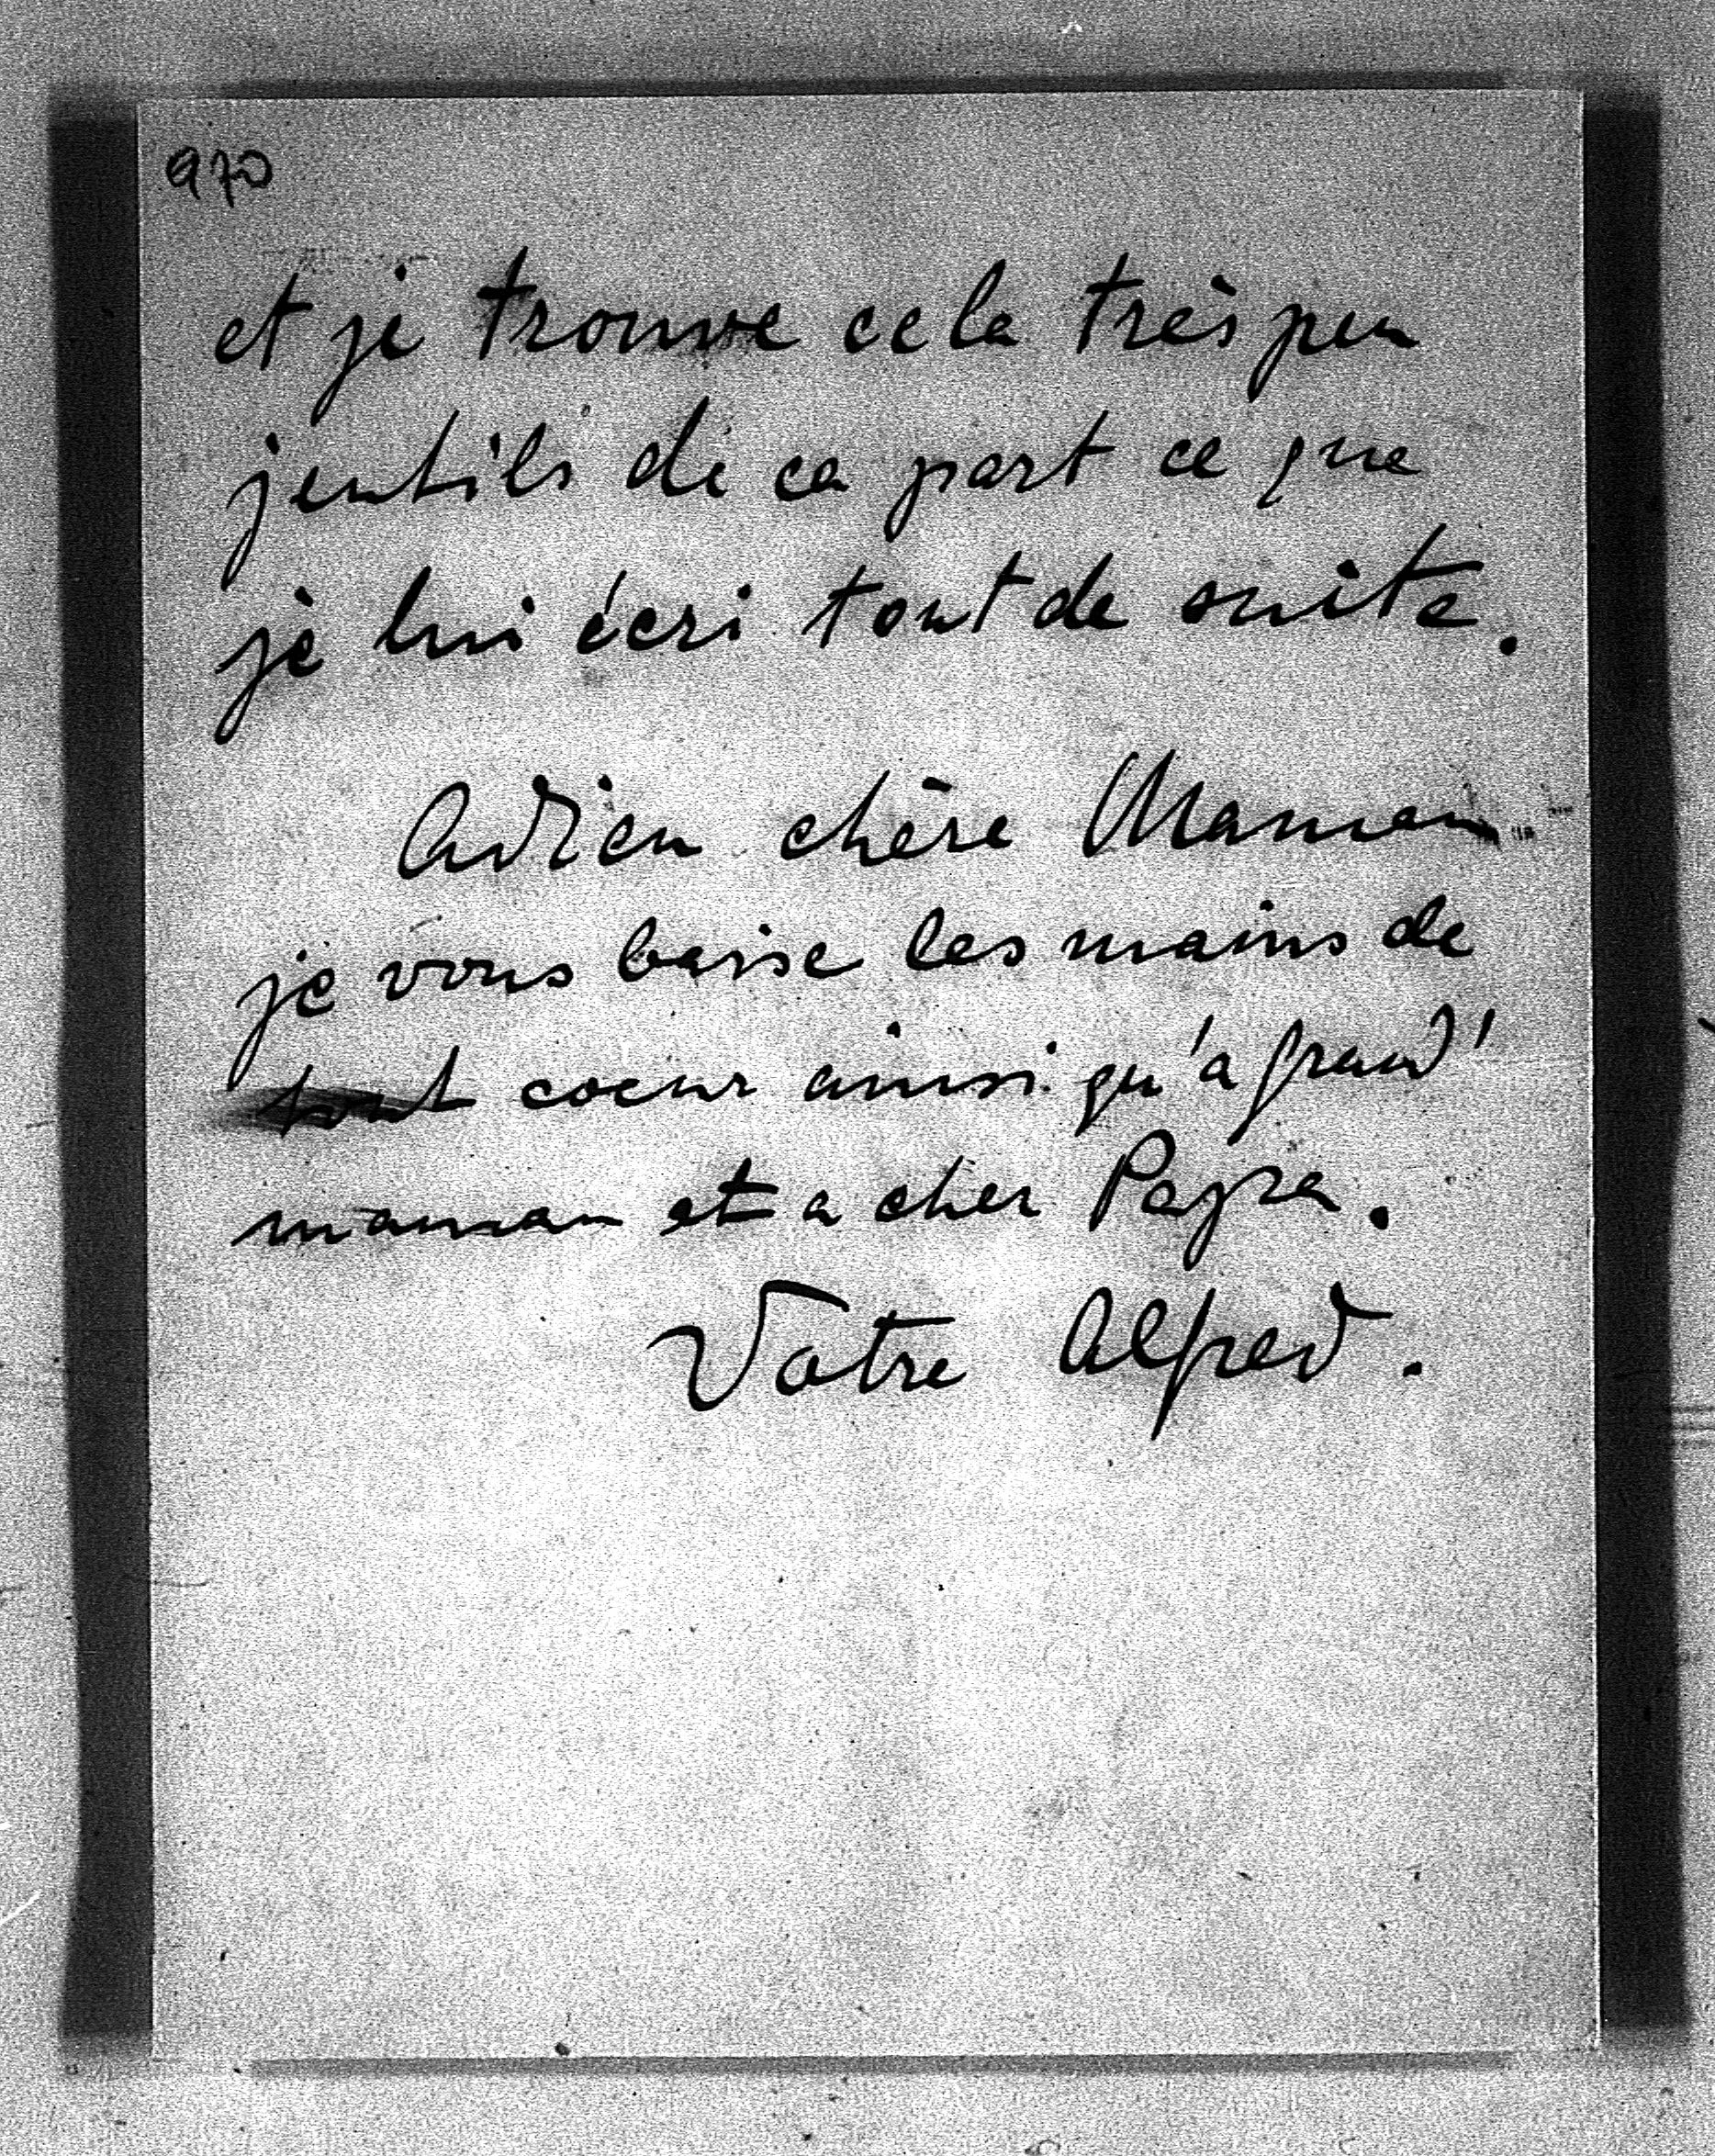 970
et je trouve cela très peu
jentils de ca part ce que
je lui écri tout de suite.
Adieu chère Maman
je vous baise les mains de
tout coeur ainsi qu'a grand'
maman et a cher Papa.
Votre Alfred.